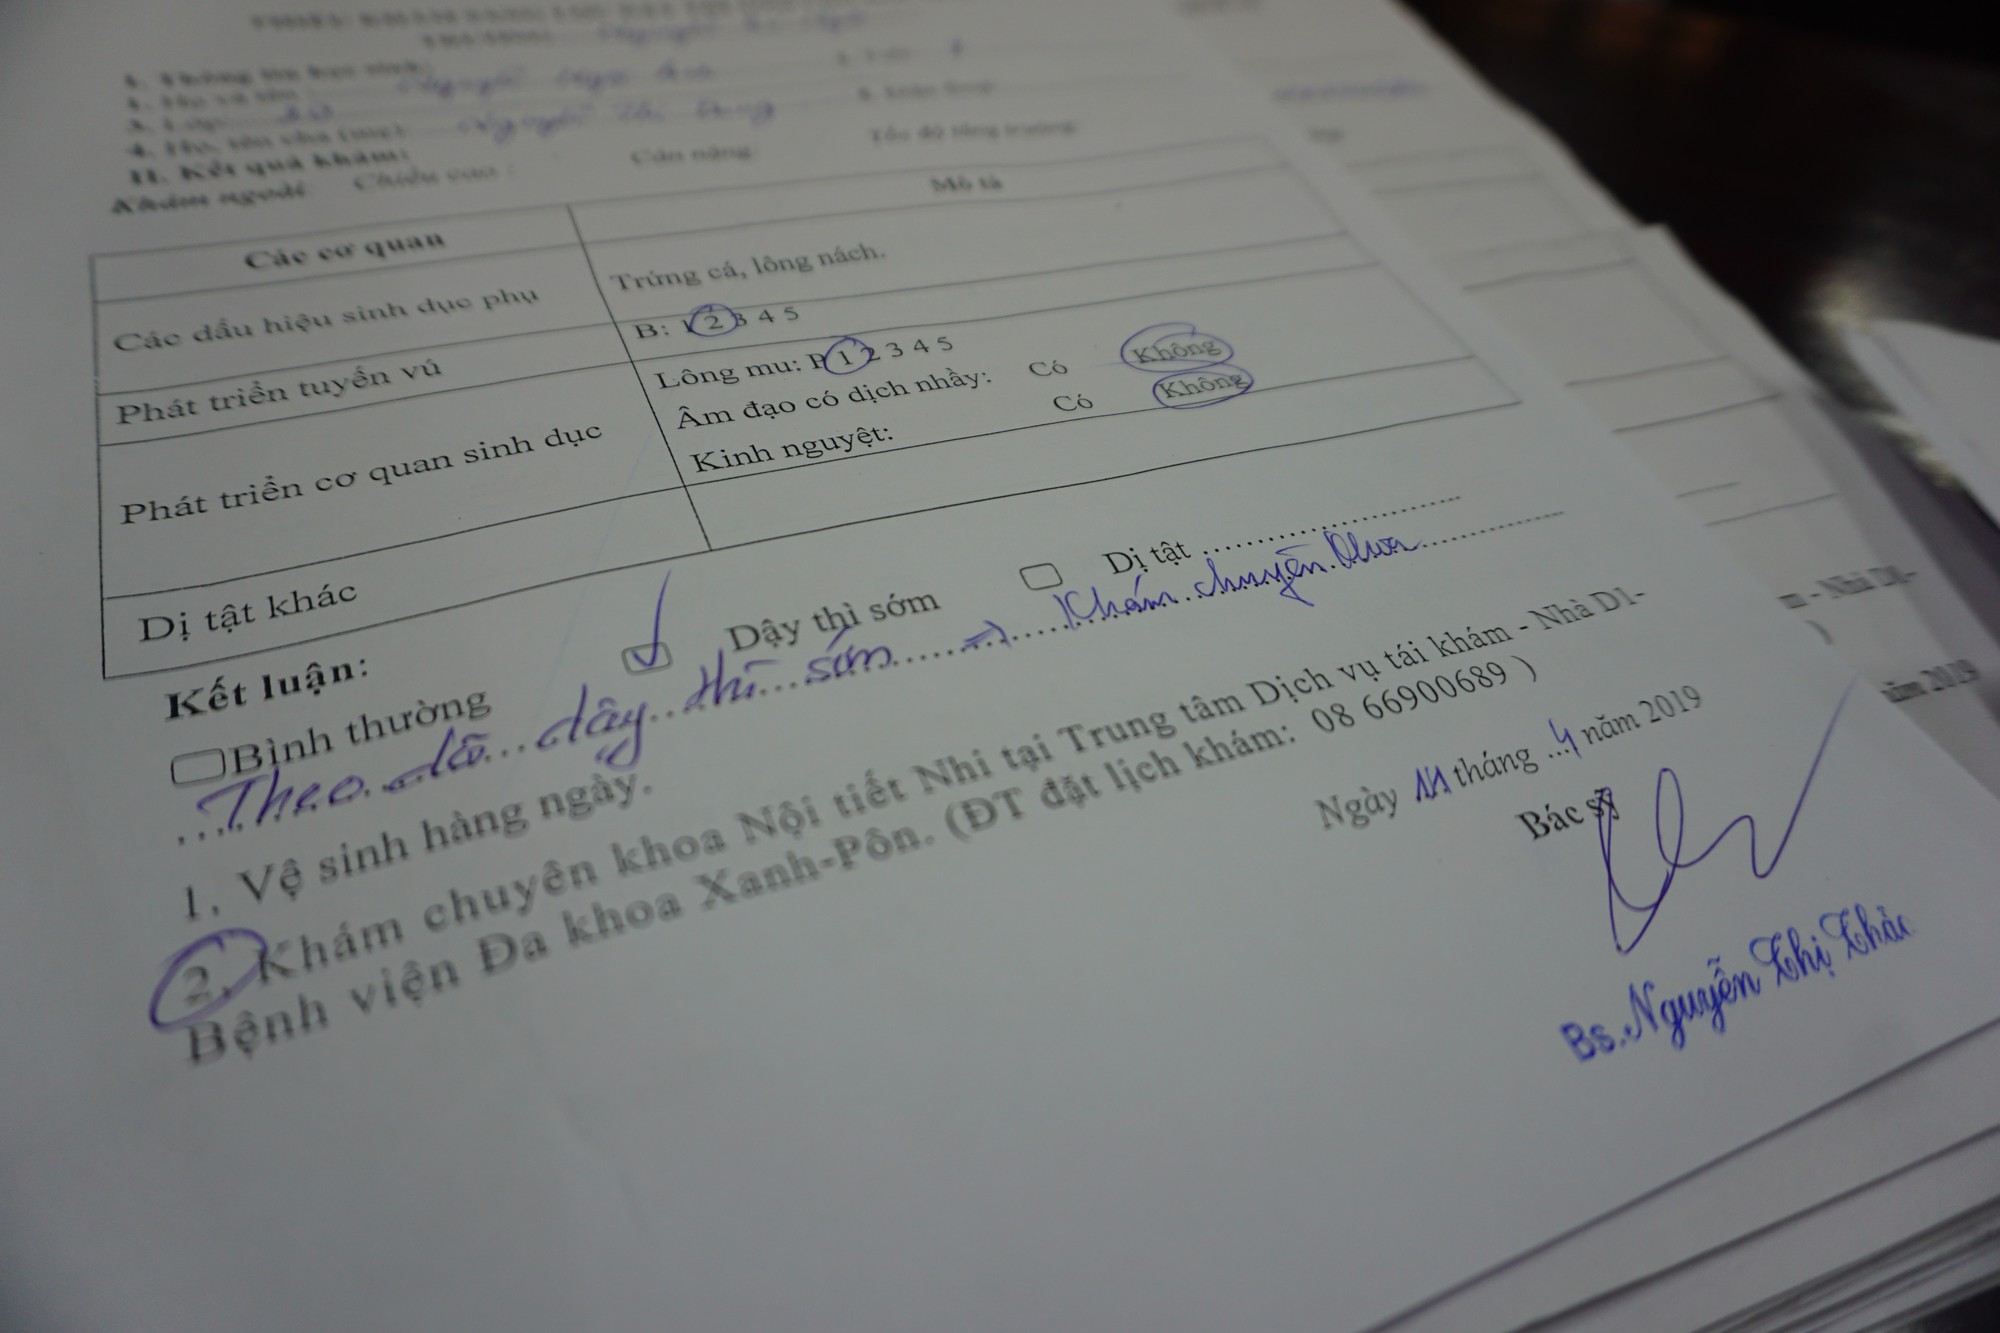 I. Thông tin học sinh:
1. Họ và tên
3. Lớp:
4. Họ, tên cha (mẹ): Nguyễn
II. Kết quả khám:
Khám ngoài: Chiều cao : Cân nặng: Tốc độ tăng trưởng:
Các cơ quan Mô tả
Các dấu hiệu sinh dục phụ Trứng cá, lông nách.
Phát triển tuyến vú B: 1 2 3 4 5
Phát triển cơ quan sinh dục Lông mu: P 1 2 3 4 5
Âm đạo có dịch nhầy: Có Không
Kinh nguyệt: Có Không
Dị tật khác
Kết luận:
Bình thường Dậy thì sớm Dị tật ........................
.....Theo dõ...dậy..thì...sớm.......→......Khám.chuyên.khoa..............
1. Vệ sinh hàng ngày.
2. Khám chuyên khoa Nội tiết Nhi tại Trung tâm Dịch vụ tái khám - Nhà D1-
Bệnh viện Đa khoa Xanh-Pôn. (ĐT đặt lịch khám: 08 66900689 )
Ngày 11 tháng ..4 năm 2019
Bác sỹ
Bs. Nguyễn Thị
- Nhà D1-
)
năm 2019